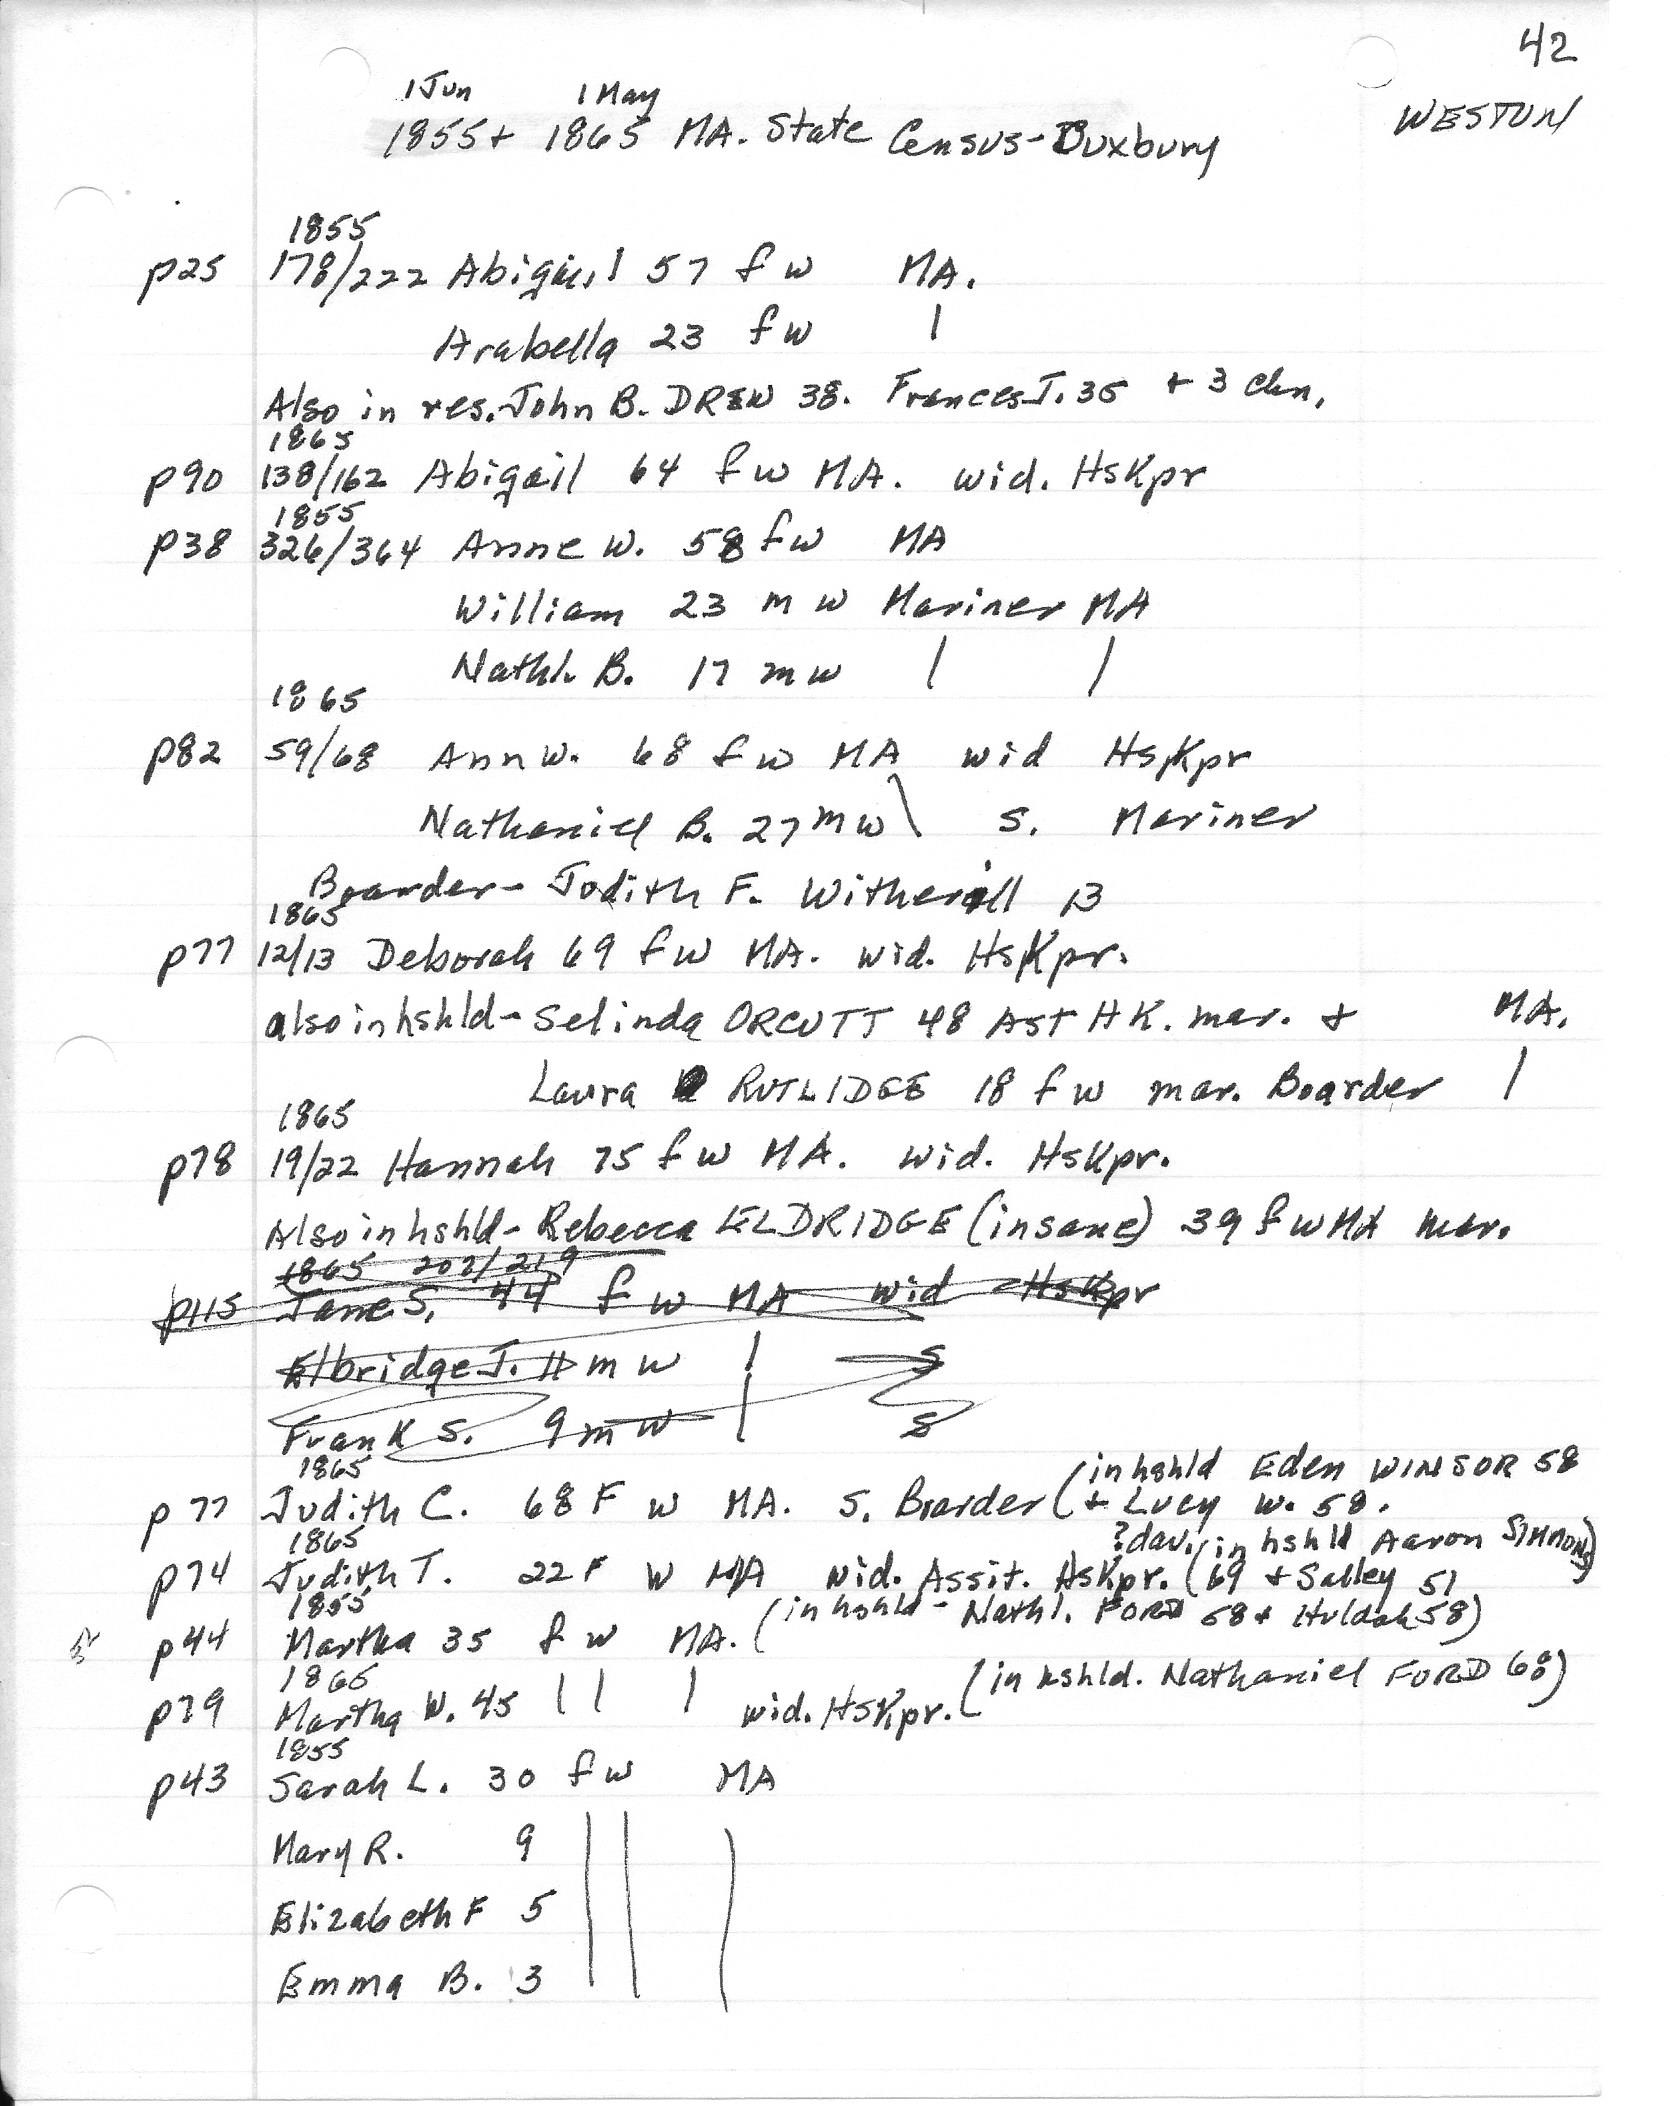 42
WESTON
1 Jun 1 May
1855 + 1865 MA. State Census - Duxbury
1855
p25 178/222 Abigail 57 f w MA.
Arabella 23 f w |
Also in res. John B. DREW 38. Frances J. 35 + 3 chn.
1865
p90 138/162 Abigail 64 f w MA. wid. HsKpr
1855
p38 326/364 Anne W. 58 f w MA
William 23 m w Mariner MA
Nathl. B. 17 m w | |
1865
p82 59/68 Ann W. 68 f w MA wid HsKpr
Nathaniel B. 27 m w \ S. Mariner
Boarder - Judith F. Witherill 13
1865
p77 12/13 Deborah 69 f w MA. wid. HsKpr.
also in hshld - Selinda ORCUTT 48 Ast HK. mar. + MA.
Laura RUTLIDGE 18 f w mar. Boarder |
1865
p78 19/22 Hannah 75 f w MA. wid. HsKpr.
Also in hshld - Rebecca ELDRIDGE (insane) 39 f w MA mar.
1865 202/219
p115 Jane S. 44 f w MA wid HsKpr
Elbridge J. 11 m w | S
Frank S. 9 m w | S
1865
(in hshld Eden WINSOR 58
p77 Judith C. 68 F w MA. S. Boarder + Lucy W. 58.
1865
?dau. (in hshld Aaron SIMMONS)
p74 Judith T. 22 F W MA wid. Assit. HsKpr. 69 + Salley 51
1855
(in hshld - Nathl. FORD 58 + Huldah 58)
p44 Martha 35 f w MA.
1865
(in hshld. Nathaniel FORD 68)
p79 Martha W. 45 | | | wid. HsKpr.
1855
p43 Sarah L. 30 f w MA
Mary R. 9
Elizabeth F 5
Emma B. 3